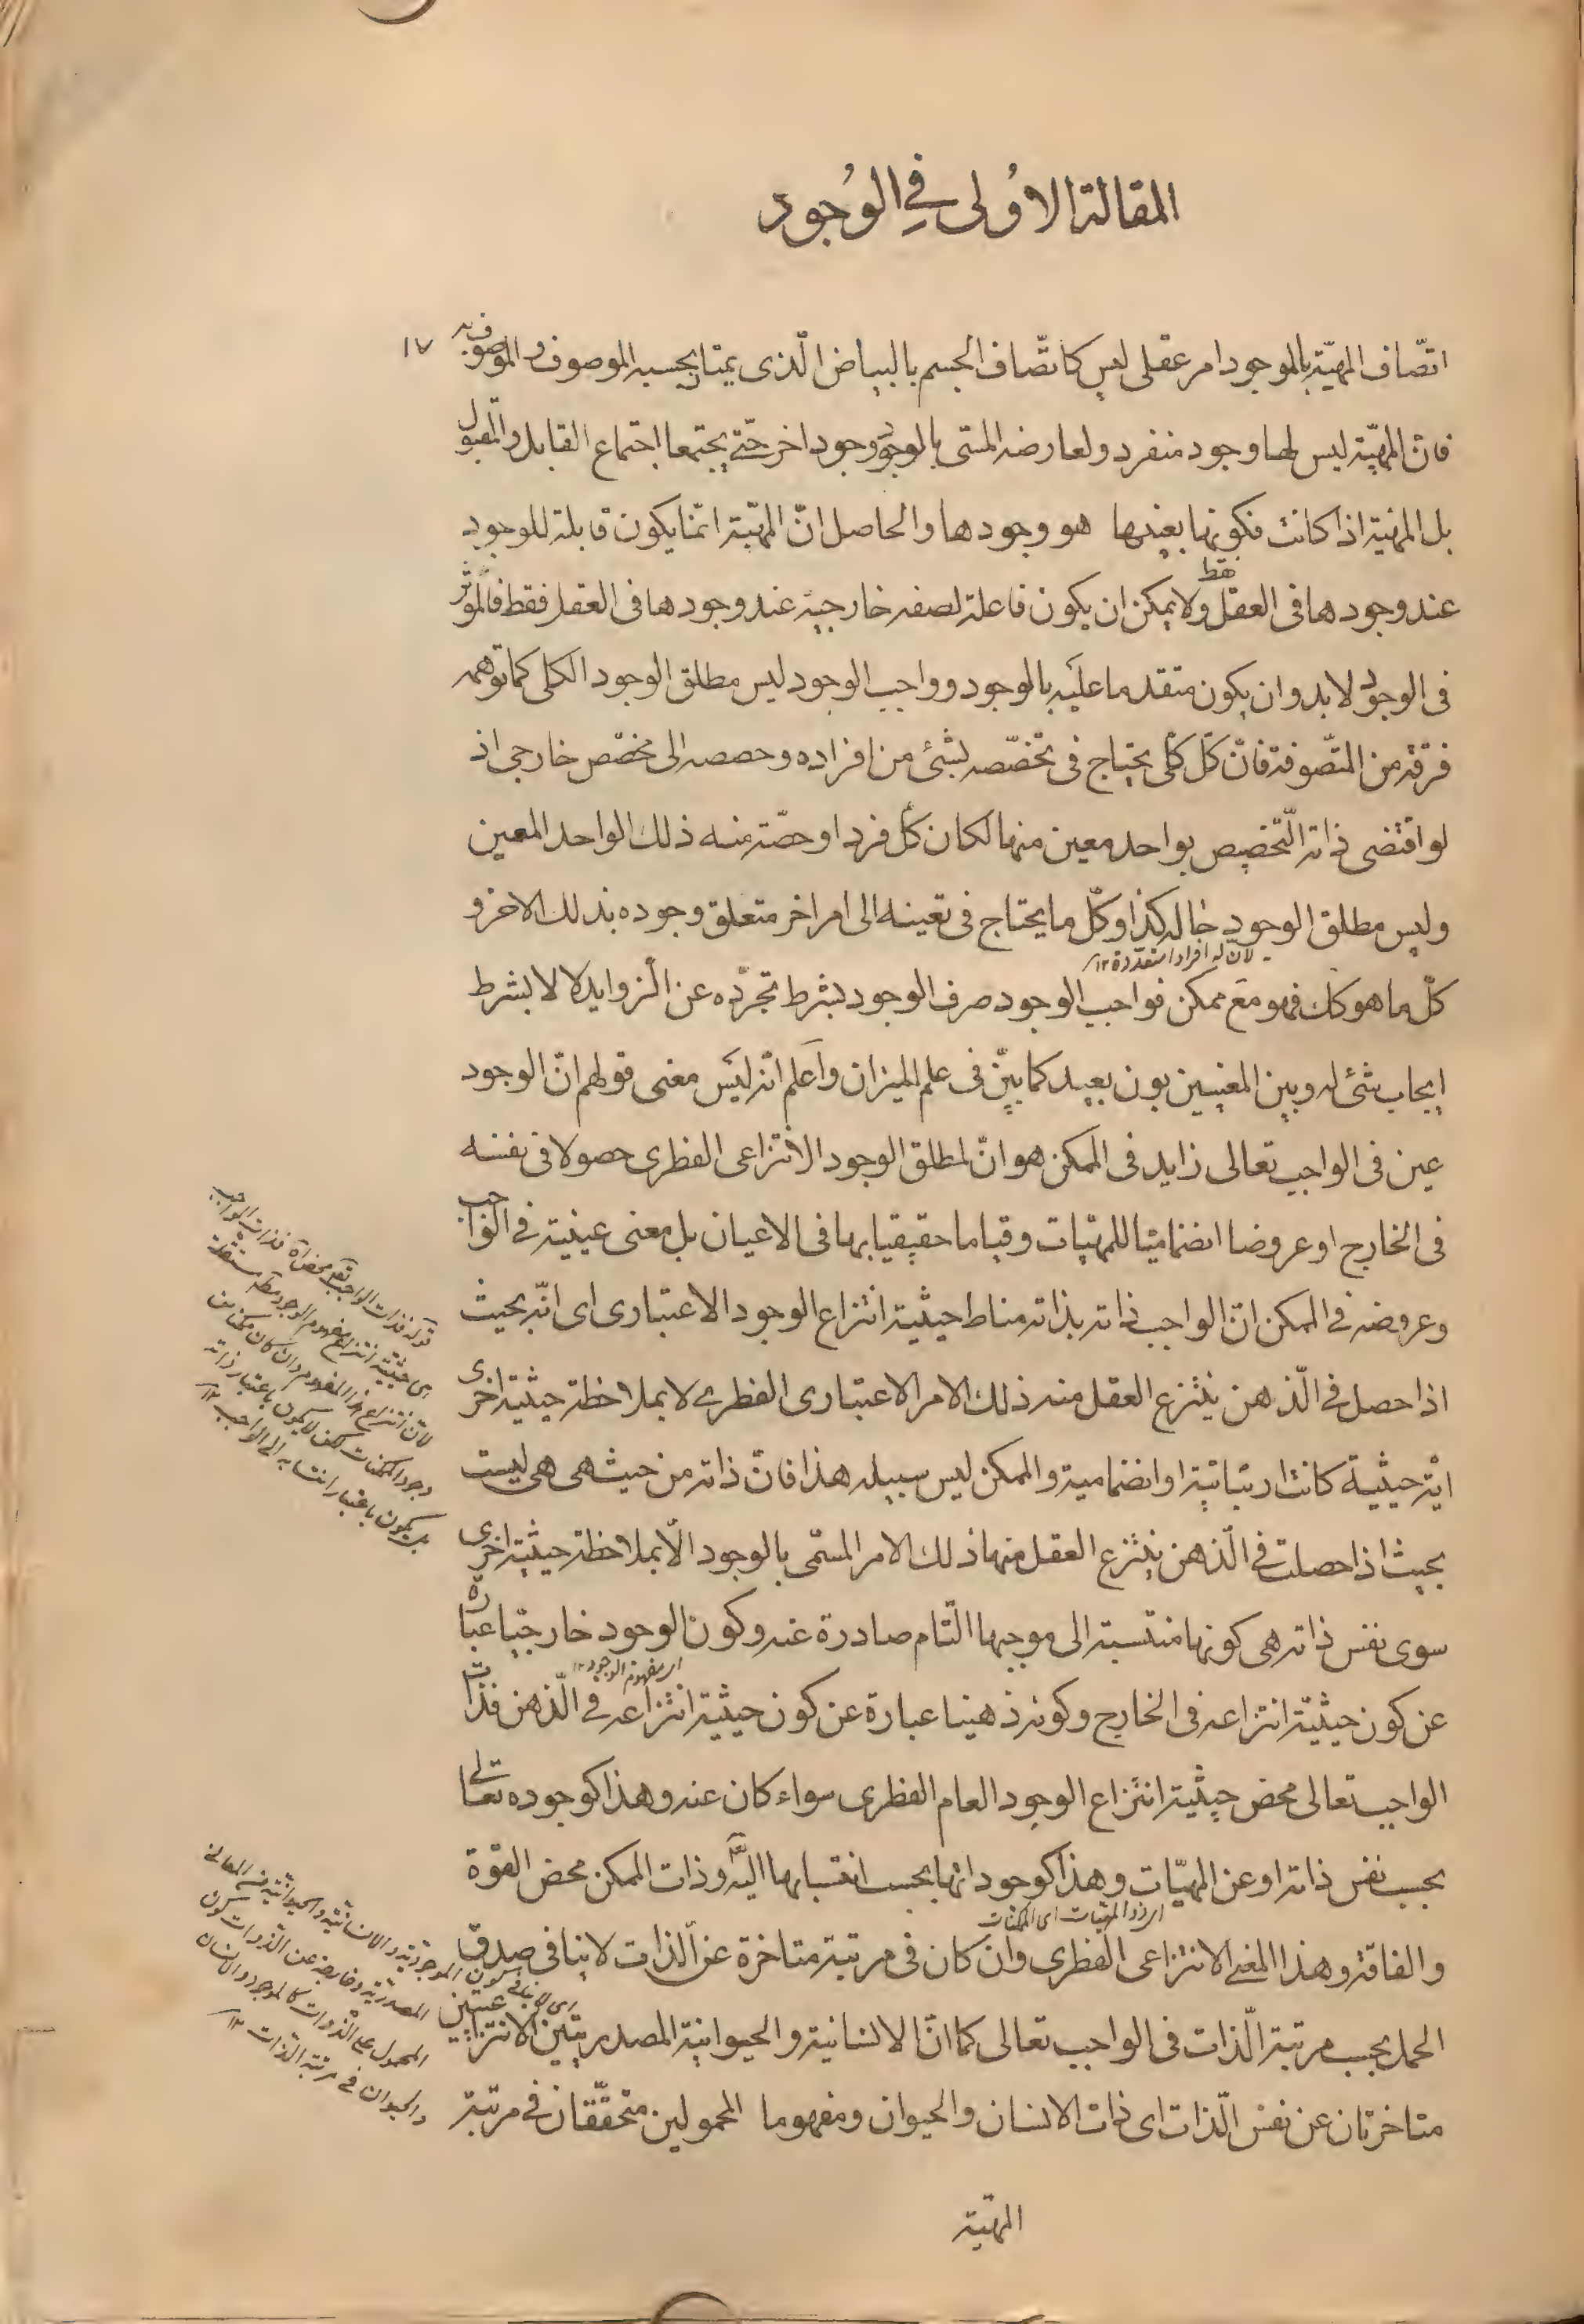 المقالة الاُولى في الوُجود
١٧
اتّصاف المهيّة بالموجود امر عقلى ليس كاتّصاف الجسم بالبياض الّذى يمتاز بحسبه الموصوف والموصوف به
فان المهيّة ليس لها وجود منفرد ولعارضه المسمى بالوجود وجود اخر حتّى يجتمعا اجتماع القابل والمقبول
بل المهيّة اذا كانت فكونها بعينها هو وجودها والحاصل انّ المهيّة انّما يكون قابلة للوجود
عند وجودها فى العقل فقط ولا يمكن ان يكون فاعلة لصفه خارجية عند وجودها فى العقل فقط فالمؤثر
فى الوجود لا بد وان يكون متقدما عليَه بالوجود وواجب الوجود ليس مطلق الوجود الكلى كما توهمه
فرقة من المتصّوفة فانّ كلّ كلّى يحتاج فى تخصّصه بشئ من افراده وحصصه الى مخصّص خارجى اذ
لو اقتضى ذاته التّخصيص بواحد معين منها لكان كلّ فرد او حصّة منه ذلك الواحد المعين
وليس مطلق الوجود حاله كذا وكلّ ما يحتاج فى تعينه الى امر اخر متعلق وجوده بذلك الاخر و
لانّ له افرادا متعدّدة ١٢
كلّ ما هو كك فهو مع ممكن فواجب الوجود صرف الوجود بشرط تجرّده عن الزوايد لا لا بشرط
ايجاب شئ له وبين المعنيين بون بعيد كما بيّن فى علم الميزان وَاَعلم انّه ليسَ معنى قولهم انّ الوجود
عين فى الواجب تعالى زايد فى الممكن هو انّ لمطلق الوجود الانتزاعى الفطرى حصولا فى نفسه
فى الخارج او عروضا انضماميّا للمهيّات وقياما حقيقيا بها فى الاعيان بل معنى عينيّة فى الواجب
وعروضه فى الممكن انّ الواجب ذاته بذاته مناط حيثية انتزاع الوجود الاعتبارى اى انّه بحيث
اذا حصل فى الّذهن ينتزع العقل منه ذلك الامر الاعتبارى الفطرى لا بملاحظة حيثية اخرى
ايّة حيثيّة كانت ارتباتيّة او انضمامية والممكن ليس سبيله هذا فانّ ذاته من حيث هى هى ليست
بحيث اذا حصلت فى الّذهن ينتزع العقل منها ذلك الامر المسمّى بالوجود الّا بملاحظة حيثية اخرى
سوى نفس ذاته هى كونها منتسبة الى موجبها التّام صادرة عنه وكون الوجود خارجيّا عبارة
عن كون حيثيّة انتزاعه فى الخارج وكونه ذهنيا عبارة عن كون حيثيّة انتزاعه فى الّذهن فذات
اى مفهوم الوجود ١٢
الواجب تعالى محض حيثيّة انتزاع الوجود العام الفطرى سواء كان عنه وهذا كوجوده تعالى
بحسب نفس ذاته او عن المهيّات وهذا كوجوداتها بحسب انتسابها اليه وذات الممكن محض القوّة
والفاقة وهذا المعنى الانتزاعى الفطرى وان كان فى مرتبة متاخرة عن الّذات لا ينافى صدق
الحمل بحسب مرتبة الّذات فى الواجب تعالى كما انّ الانسانية والحيوانية المصدريتين الانتزاعيين
متاخرتان عن نفس الّذات اى ذات الانسان والحيوان ومفهوما المحمولين متحقّقان فى مرتبة
المهيّة
قوله فذات الواجب محض اه فذات الواجب
اى حيثيّة انتزاع مفهوم الوجود
لان انتزاع هذا المفهوم وان كان
وجود الممكنات لكن لا يكون باعتبار ذاته
بل يكون باعتبار انتسابه الى الواجب ١٢
اى لا ينافى كون الموجوديّة والانسانيّة والحيوانيّة من المعانى
المصدريّة وخارجة عن الذوات كون
المحمول على الذوات كالموجود والانسان
والحيوان فى مرتبة الذات ١٢